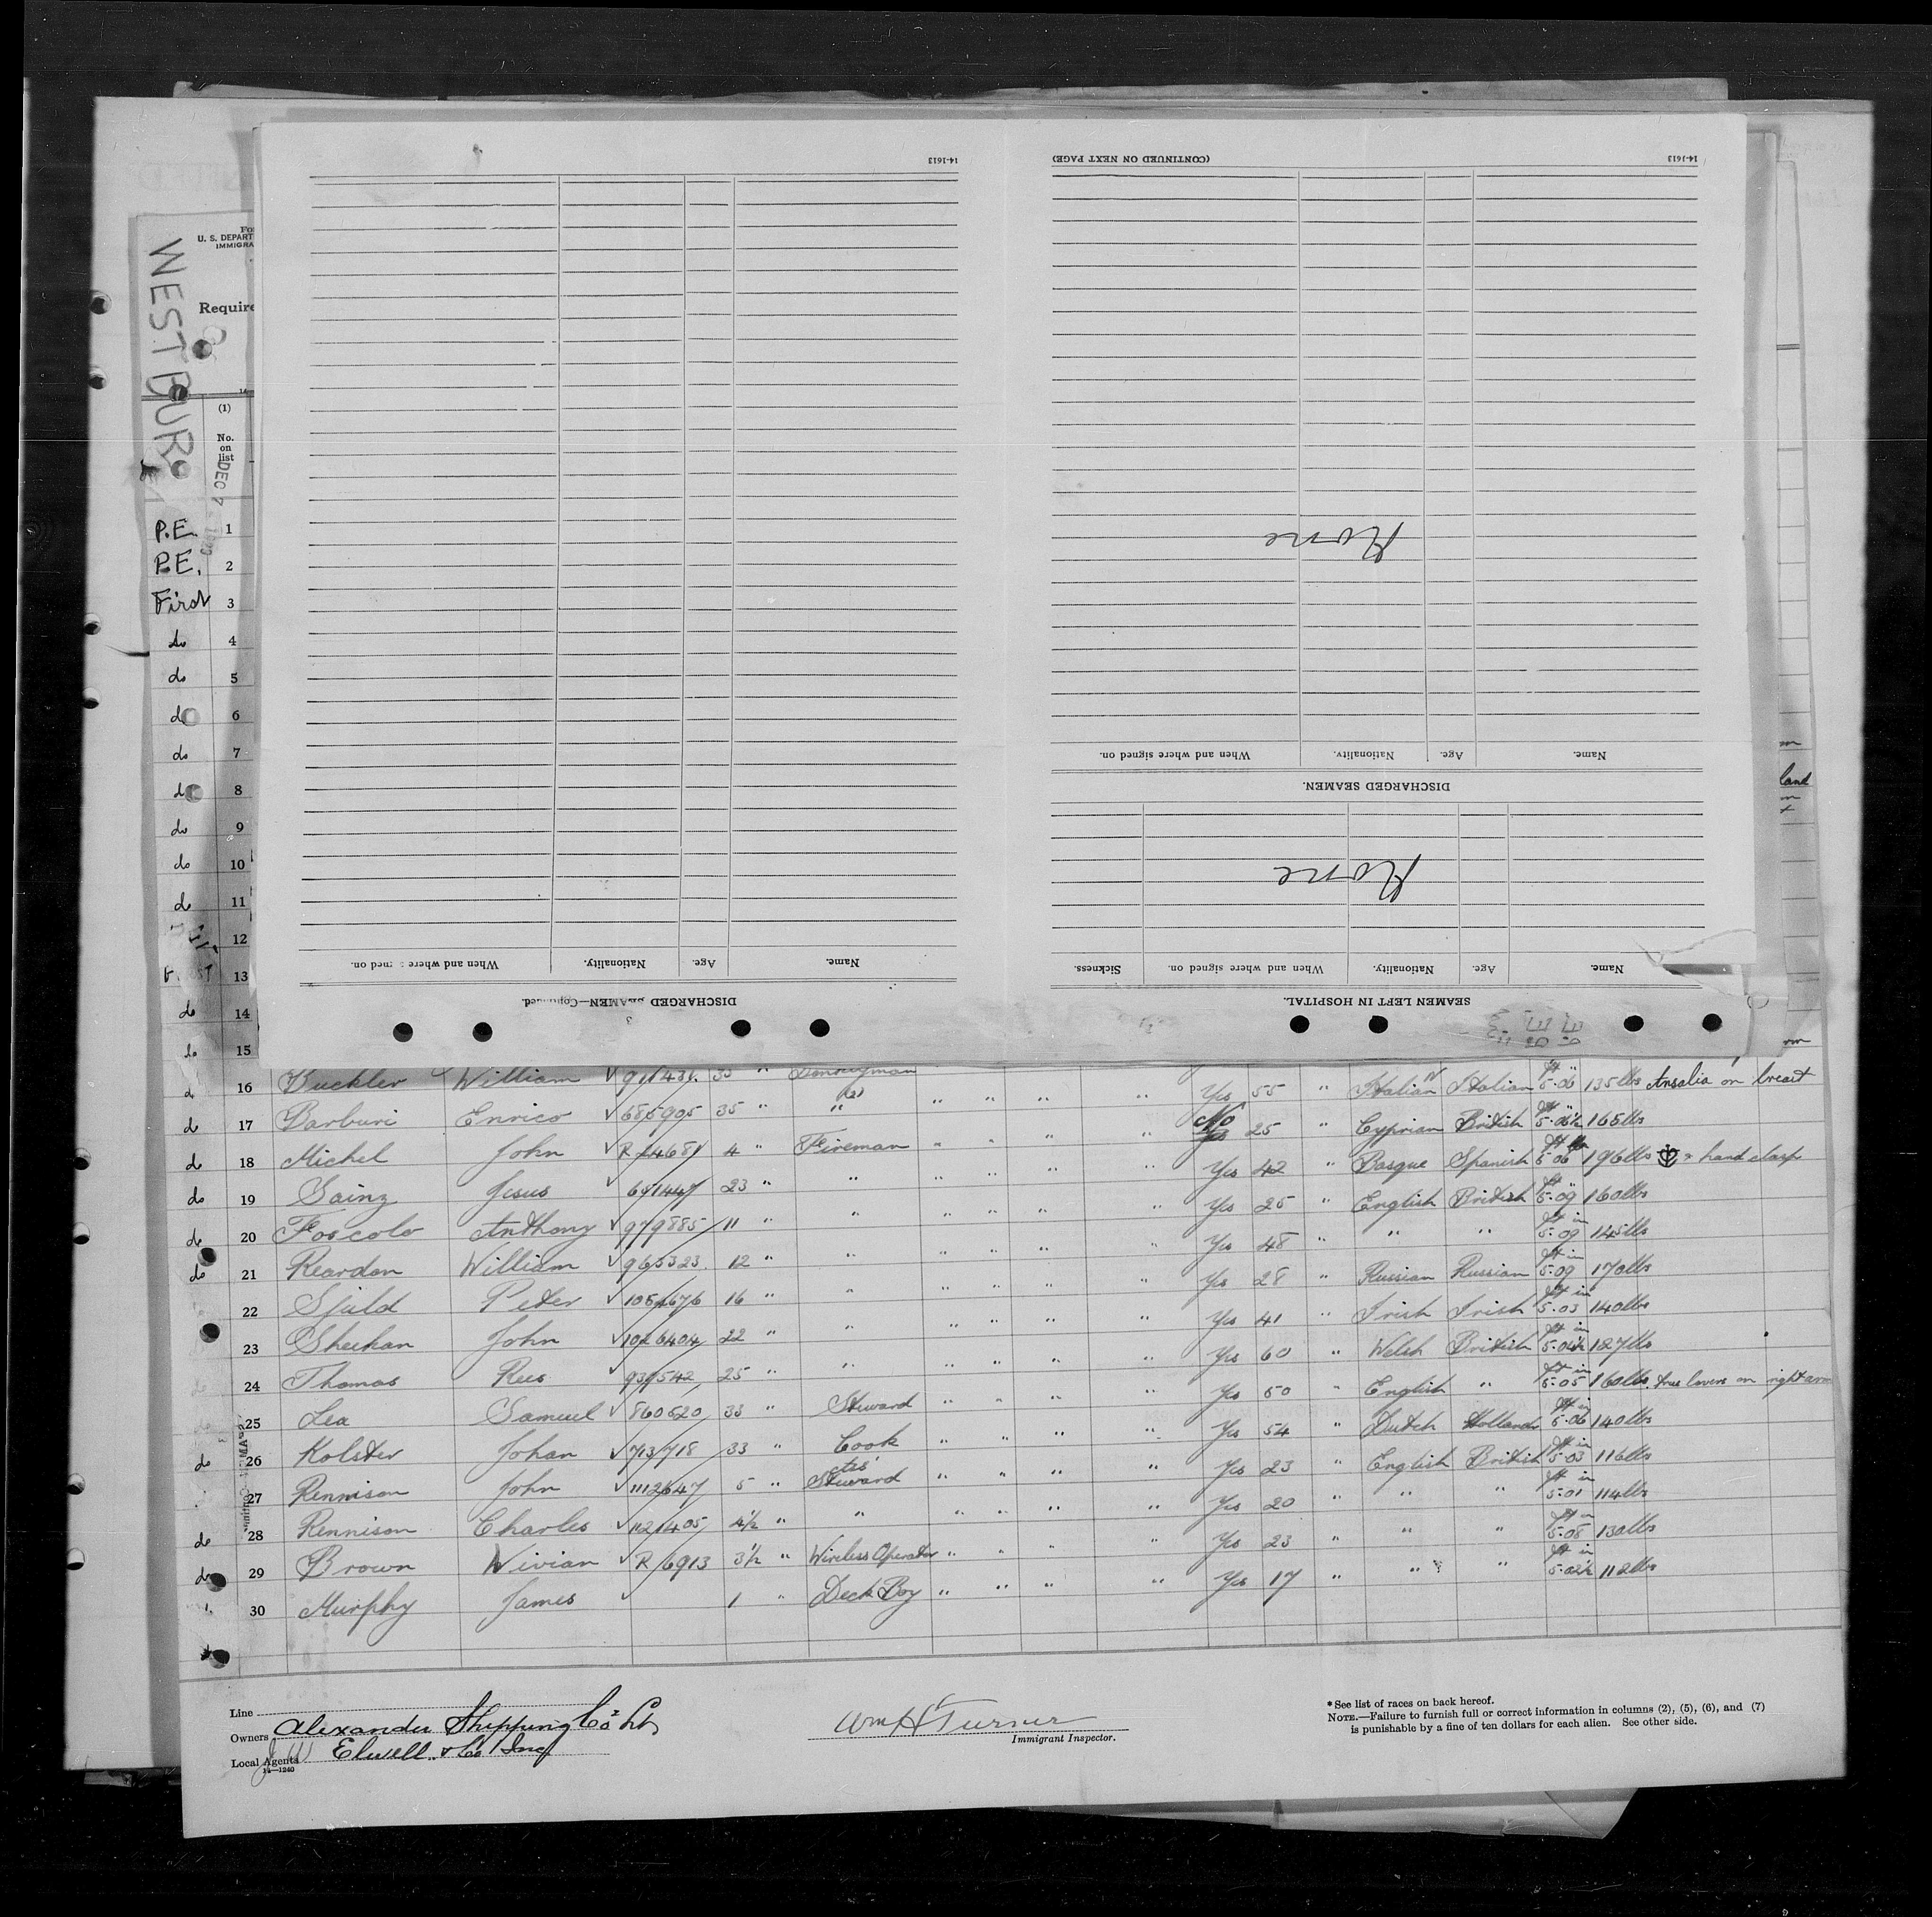 14-1613
(CONTINUED ON NEXT PAGE)
14-1613
U. S. DEPART
IMMIGRA
WESTBUR
Require
(1)
No. on list
DEC 7
P.E. 1
P.E. 2
First 3
do 4
do 5
do 6
do 7
do 8
do 9
do 10
do 11
12
13
do 14
do 15
None
Name. Age. Nationality. When and where signed on.
DISCHARGED SEAMEN.
None
Name. Age. Nationality. When and where signed on. Sickness.
SEAMEN LEFT IN HOSPITAL.
Name. Age. Nationality. When and where signed on.
DISCHARGED SEAMEN—Continued.
land
do 16 Buckler William 911431 35 " Donkeyman
do 17 Barburi Enrico 685905 35 " " " " " " Yes 55 " Italian Italian 5-06 135 lbs Ansalia on breast
do 18 Michel John R 14681 4 " Fireman " " " " No Yes 25 " Cyprian British 5-06½ 165 lbs
do 19 Sainz Jesus 641447 23 " " " " " " Yes 42 " Basque Spanish 5-06 196 lbs hand clasp
do 20 Foscolo Anthony 979885 11 " " " " " " Yes 25 " English British 5-09 160 lbs
do 21 Reardon William 965323 12 " " " " " " Yes 48 " " " 5-09 145 lbs
22 Sjuld Peter 1054676 16 " " " " " " Yes 28 " Russian Russian 5-09 170 lbs
23 Sheehan John 1026404 22 " " " " " " Yes 41 " Irish Irish 5-03 140 lbs
24 Thomas Rees 939542 25 " " " " " " Yes 60 " Welsh British 5-04½ 127 lbs
25 Lea Samuel 860520 33 " Steward " " " " Yes 50 " English " 5-05 160 lbs true lovers on right arm
do 26 Kolster Johan 713718 33 " Cook " " " " Yes 54 " Dutch Holland 5-06 140 lbs
27 Rennison John 1112647 5 " Steward " " " " Yes 23 " English British 5-03 116 lbs
do 28 Rennison Charles 1121405 4½ " " " " " " Yes 20 " " " 5-01 114 lbs
do 29 Brown Wivian R 6913 3½ " Wireless Operator " " " " Yes 23 " " " 5-08 130 lbs
30 Murphy James 1 " Deck Boy " " " " Yes 17 " " " 5-02½ 112 lbs
Line
Owners Alexander Shipping Co Ld
Local Agents Elwell & Co Inc
14—1240
Wm H Turner
Immigrant Inspector.
*See list of races on back hereof.
NOTE.—Failure to furnish full or correct information in columns (2), (5), (6), and (7)
is punishable by a fine of ten dollars for each alien. See other side.